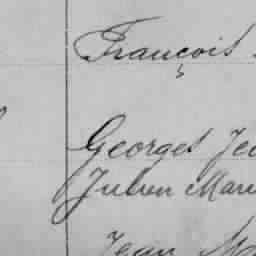 François
Georges Je
Julien Mari
Jean Ma